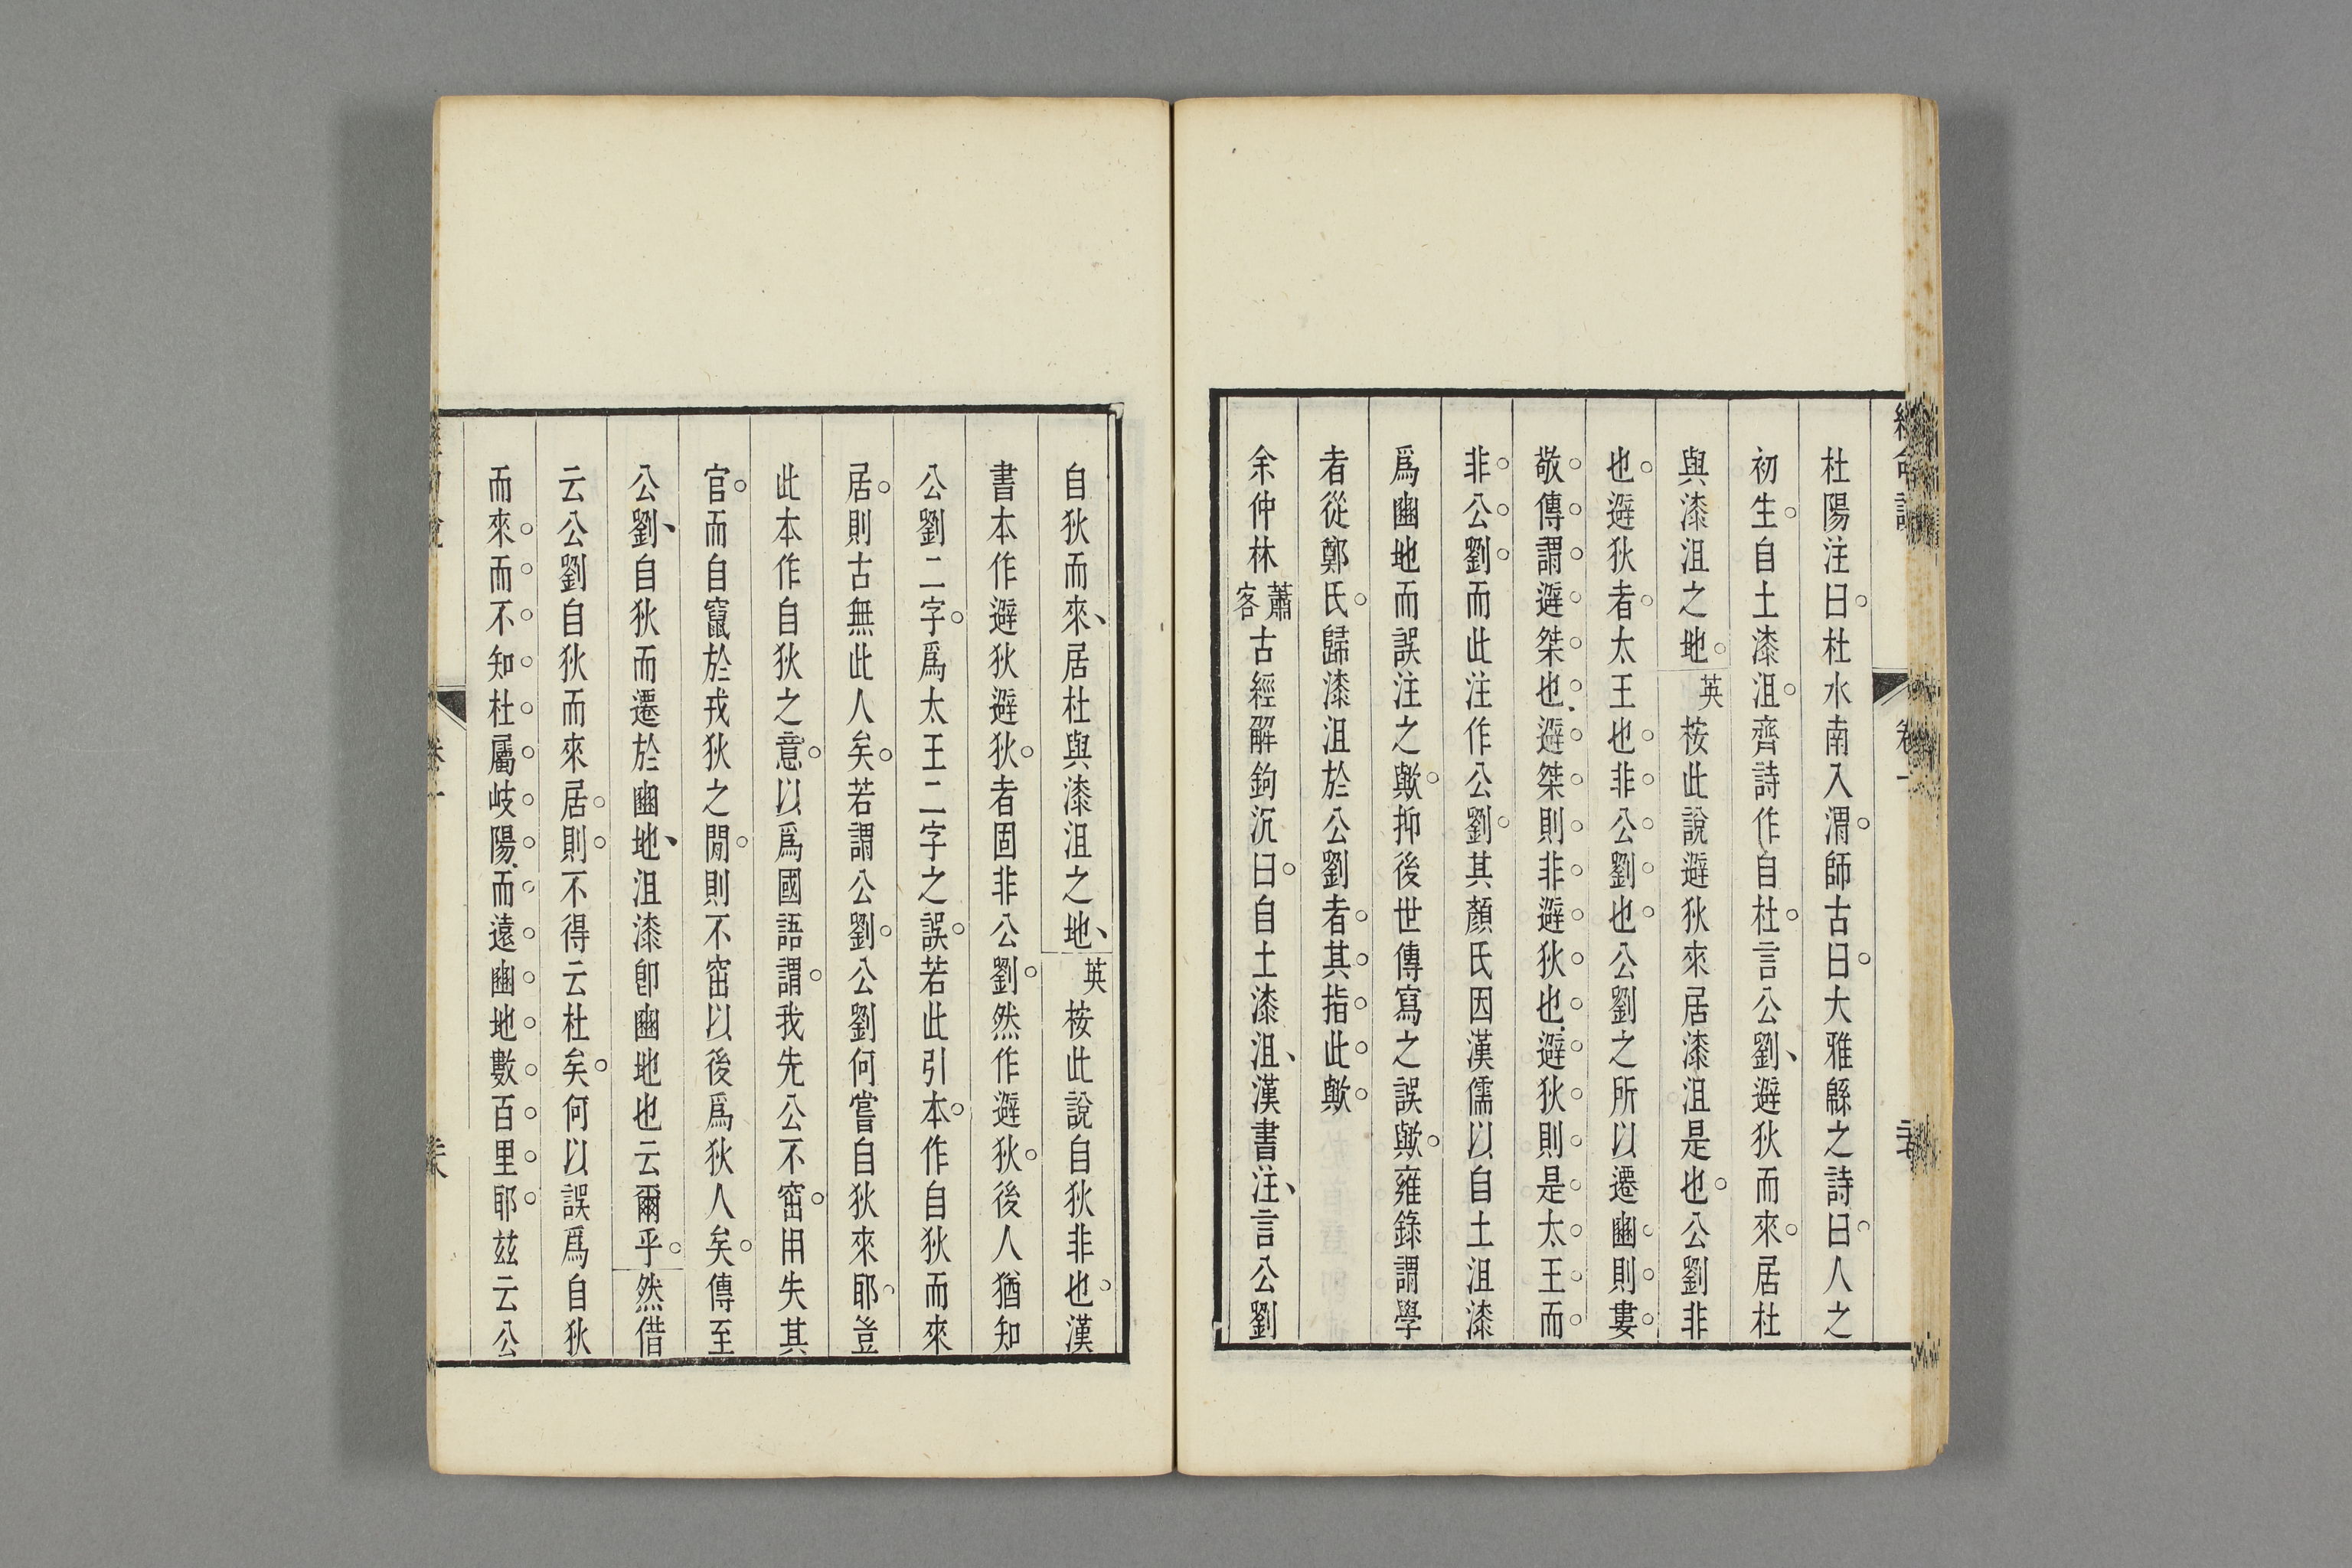 杜陽注曰杜水南入渭師古曰大雅緜之詩曰人之
初生自土漆沮齊詩作自杜言公劉避狄而來居杜
與漆沮之地英桉此說避狄來居漆沮是也公劉非
也避狄者太王也非公劉也公劉之所以遷豳則婁
敬傳謂避桀也避桀則非避狄也避狄則是太王而
非公劉而此注作公劉其顏氏因漢儒以自土沮漆
爲豳地而誤注之歟抑後世傳寫之誤歟雍錄謂學
者從鄭氏歸漆沮於公劉者其指此歟
余仲林蕭客古經解鉤沉曰自土漆沮漢書注言公劉
自狄而來居杜與漆沮之地英桉此說自狄非也漢
書本作避狄避狄者固非公劉然作避狄後人猶知
公劉二字爲太王二字之誤若此引本作自狄而來
居則古無此人矣若謂公劉公劉何嘗自狄來耶豈
此本作自狄之意以爲國語謂我先公不窋用失其
官而自竄於戎狄之閒則不窋以後爲狄人矣傳至
公劉自狄而遷於豳地沮漆卽豳地也云爾乎然借
云公劉自狄而來居則不得云杜矣何以誤爲自狄
而來而不知杜屬岐陽而遠豳地數百里耶茲云公
卷一